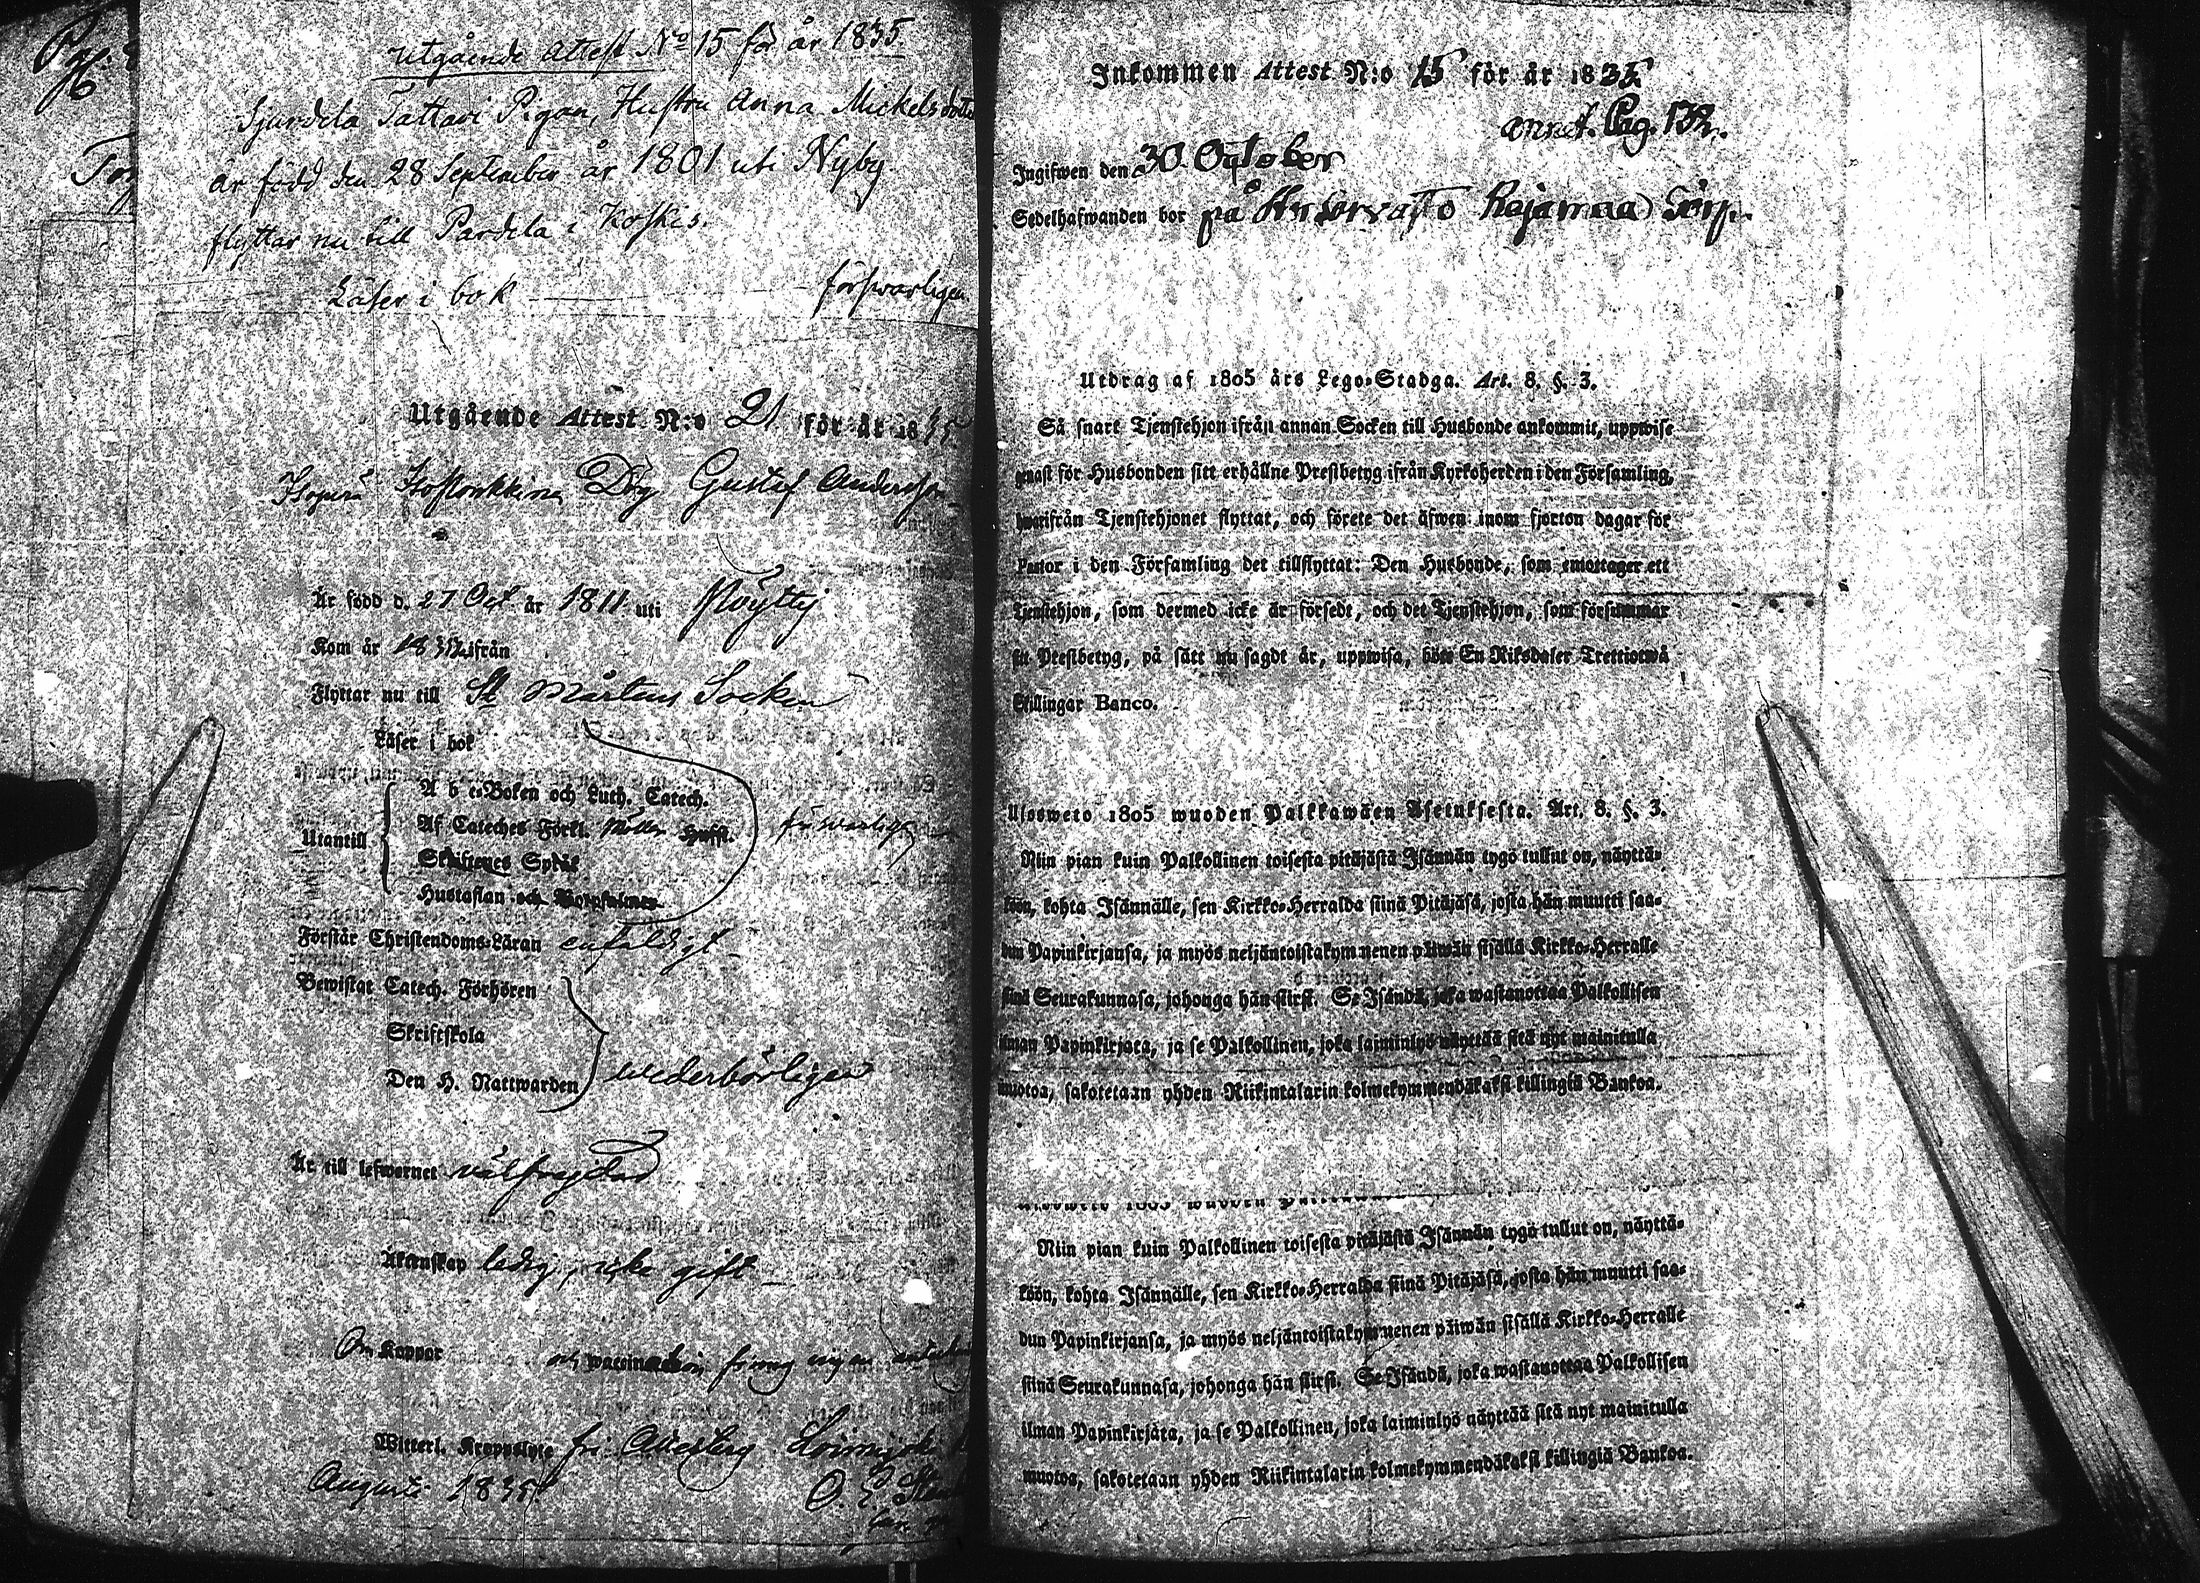 Utgående Attest No 15 för år 1835.
Sjurdela Tattari Pigan, Hustru Anna Mickelsdotter
är född den 28 September år 1801 uti Nyby
flyttar nu till Pardela i Koskis.
Läser i bok — försvarligen
Utgående Attest N:o 21 för år 1835
Dräg Gustaf Andersson
Är född d. 27 Oct. år 1811 uti Pöyttj
Kom år ifrån
Flyttar nu till St Mårtens Socken
Läser i bok
A b c-Boken och Luth. Catech.
Utantill
Af Cateches Förkl. försvarligt
Skriftenes Språk
Hustaflan och Botpsalmer
Förstår Christendoms-Läran enfaldigt
Bewistat Catech. Förhören
Skriftskola
Den H. Nattwarden wederbörligen
Är till lefwernet välfrejdad
Äktenskap ledig, icke gift
Om Koppor och vaccination finnes ingen
Witterl. Kroppslyte fri. Attesterg Loimijoki
Augusti 1835.
Inkommen Attest N:o 15 för år 1835
annot. Pag. 132.
Ingifwen den 30 October
Sedelhafwanden bor på
Utdrag af 1805 års Lego-Stadga. Art. 8. §. 3.
Så snart Tjenstehjon ifrån annan Socken till Husbonde ankommit, uppwise
genast för Husbonden sitt erhållne Prestbetyg ifrån Kyrkoherden i den Församling,
hwarifrån Tjenstehjonet flyttat, och förete det äfwen inom fjorton dagar för
Pastor i den Församling det tillflyttat: Den Husbonde, som emottager ett
Tjenstehjon, som dermed icke är försedt, och det Tjenstehjon, som försummar
sitt Prestbetyg, på sätt nu sagdt är, uppwisa, böte En Riksdaler Trettiotwå
Skillingar Banco.
Ulosweto 1805 wuoden Palkkawäen Asetuksesta. Art. 8. §. 3.
Niin pian kuin Palkollinen toisesta pitäjästä Isännän tygö tullut on, näyttä-
köön, kohta Isännälle, sen Kirkko-Herralda siinä Pitäjäsä, josta hän muutti saa-
dun Papinkirjansa, ja myös neljäntoistakymmenen päiwän sisällä Kirkko-Herralle
siinä Seurakunnasa, johonga hän siirsi. Se Isändä, joka wastanottaa Palkollisen
ilman Papinkirjata, ja se Palkollinen, joka laiminlyö näyttää sitä nyt mainitulla
muotoa, sakotetaan yhden Riikintalarin kolmekymmendäkaksi killingiä Bankoa.
Niin pian kuin Palkollinen toisesta pitäjästä Isännän tygö tullut on, näyttä-
köön, kohta Isännälle, sen Kirkko-Herralda siinä Pitäjäsä, josta hän muutti saa-
dun Papinkirjansa, ja myös neljäntoistakymmenen päiwän sisällä Kirkko-Herralle
siinä Seurakunnasa, johonga hän siirsi. Se Isändä, joka wastanottaa Palkollisen
ilman Papinkirjata, ja se Palkollinen, joka laiminlyö näyttää sitä nyt mainitulla
muotoa, sakotetaan yhden Riikintalarin kolmekymmendäkaksi killingiä Bankoa.